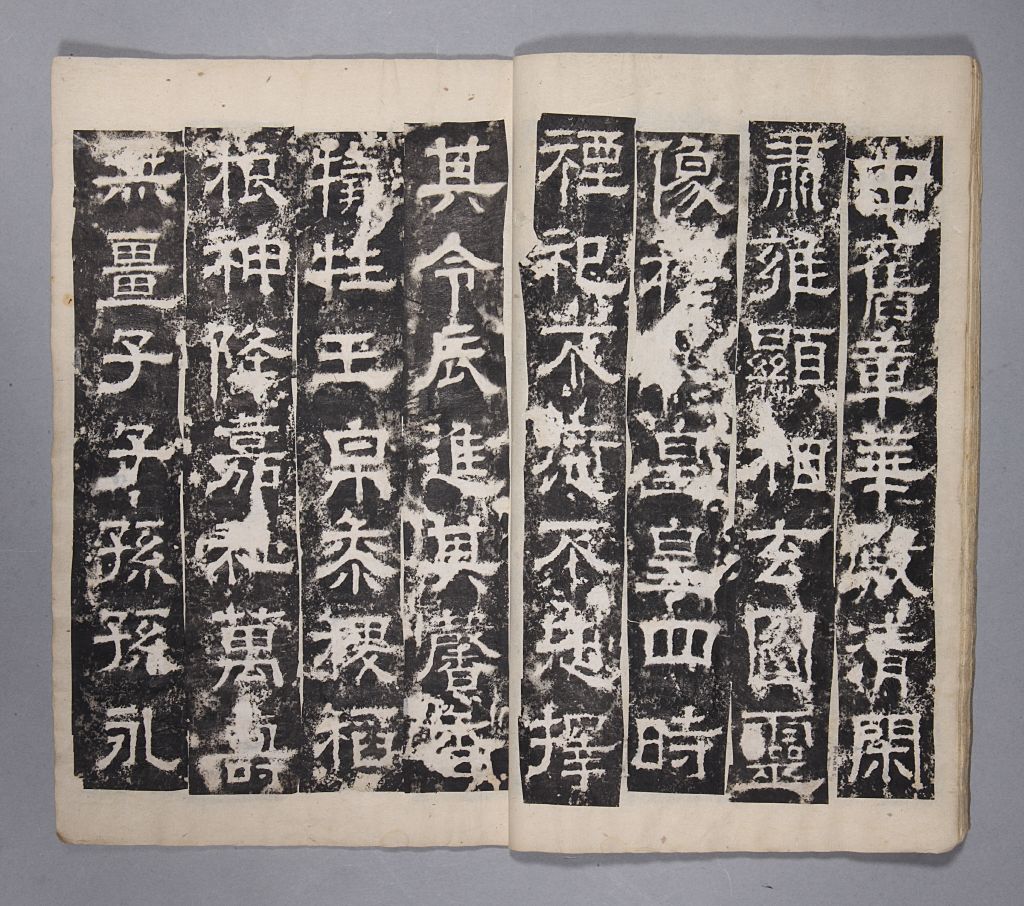 由舊章華殿清閑
肅雍顯相玄圖靈
像穆穆皇皇四時
禋祀不愆不忘擇
其令辰進其馨香
犧牲玉帛黍稷稻
粮神降嘉祉萬壽
無畺子子孫孫永